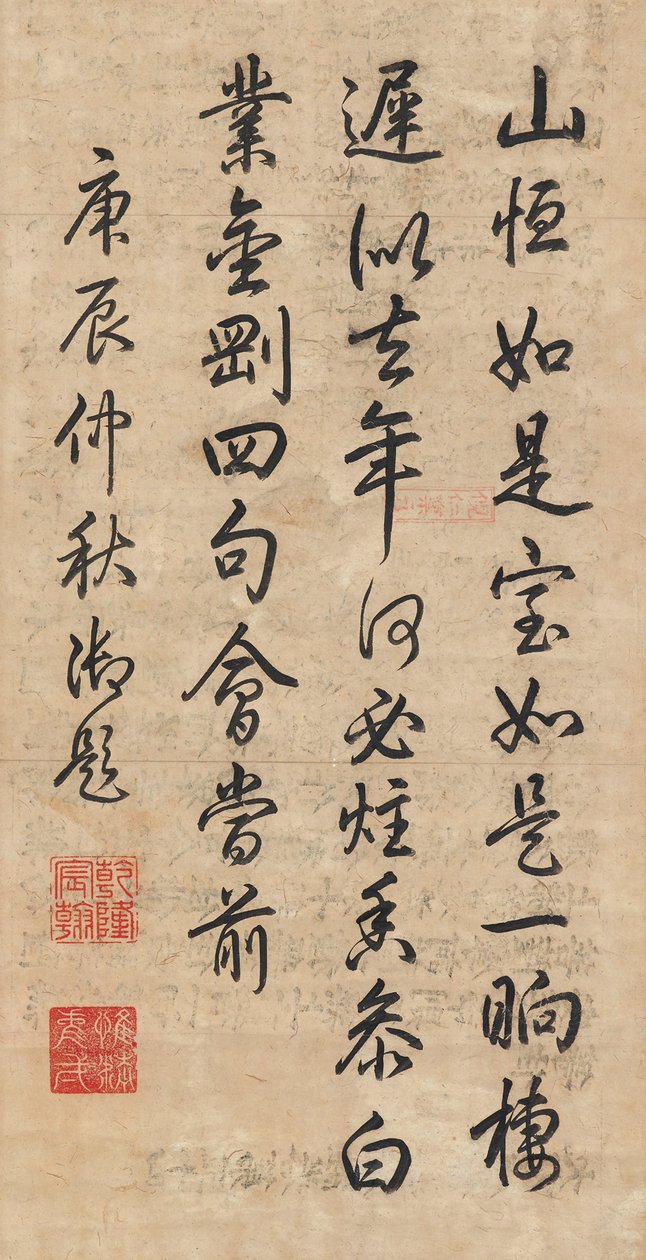 山恒如是室如是一晌棲
遲似去年何必炷香參白
業金剛四句會當前
庚辰仲秋御題
乾隆宸翰
惟精惟弌